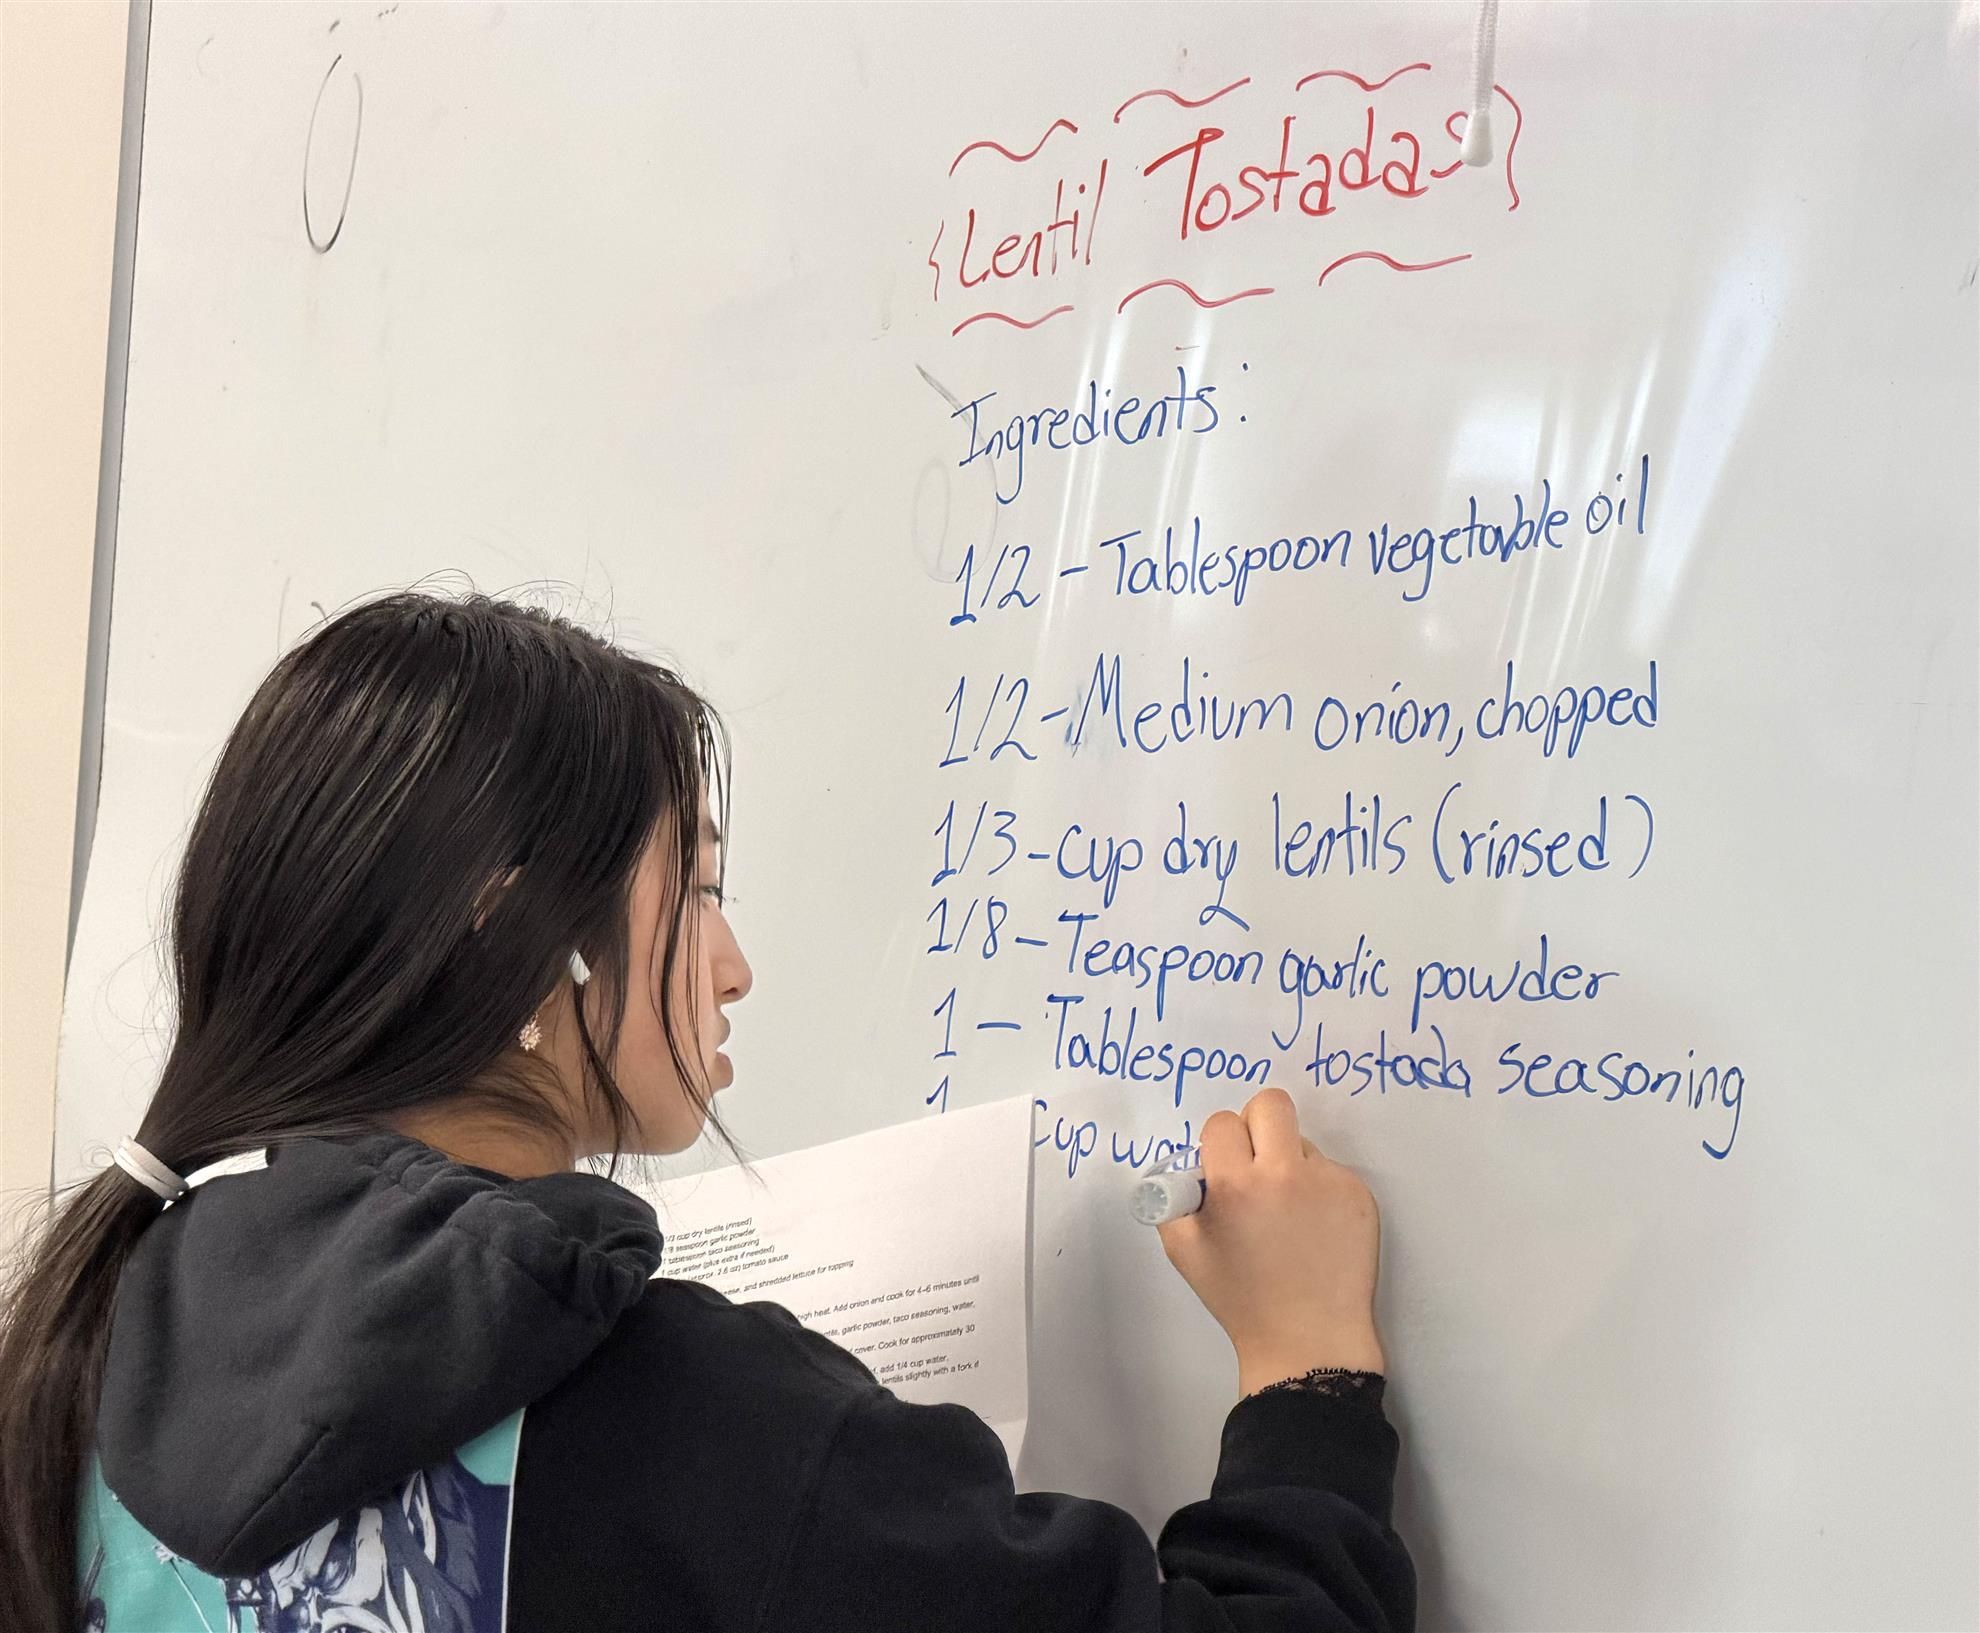 Lentil Tostadas
Ingredients:
1/2 - Tablespoon vegetable oil
1/2 - Medium onion, chopped
1/3 - cup dry lentils (rinsed)
1/8 - Teaspoon garlic powder
1 - Tablespoon tostada seasoning
1 Cup wat
1/3 cup dry lentils (rinsed)
1/8 teaspoon garlic powder
1 tablespoon taco seasoning
1 cup water (plus extra if needed)
2.6 oz) tomato sauce
and shredded lettuce for topping
high heat. Add onion and cook for 4-6 minutes until
garlic powder, taco seasoning, water,
cover. Cook for approximately 30
add 1/4 cup water.
lentils slightly with a fork if